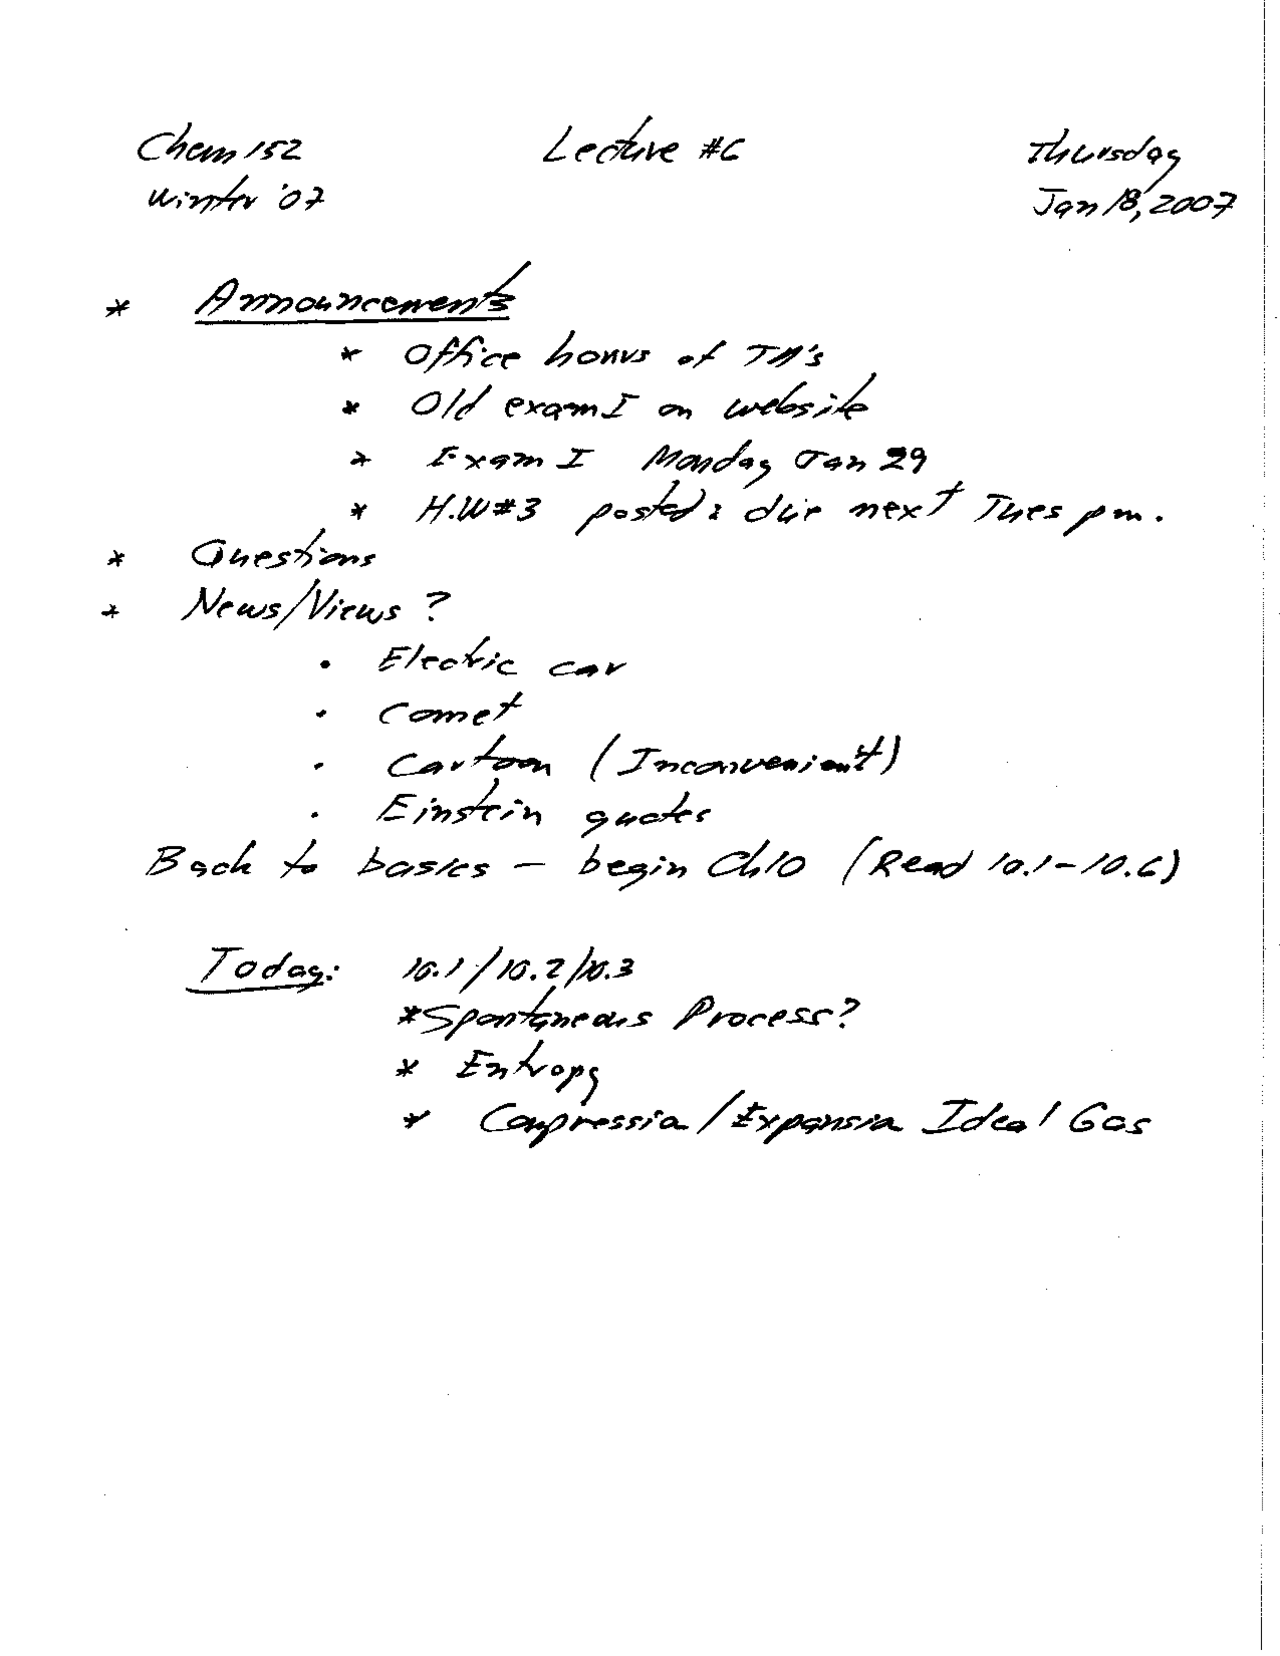 Chem 152 Lecture #6 Thursday
Winter '07 Jan 18, 2007
* Announcements
* Office hours of TA's
* Old exam I on website
* Exam I Monday Jan 29
* H.W#3 posted: due next Tues pm.
* Questions
* News/Views ?
• Electric car
• Comet
• Cartoon (Inconvenient)
• Einstein quotes
Back to basics – begin Ch10 (Read 10.1-10.6)
Today: 10.1/10.2/10.3
* Spontaneous Process?
* Entropy
* Compression/Expansion Ideal Gas